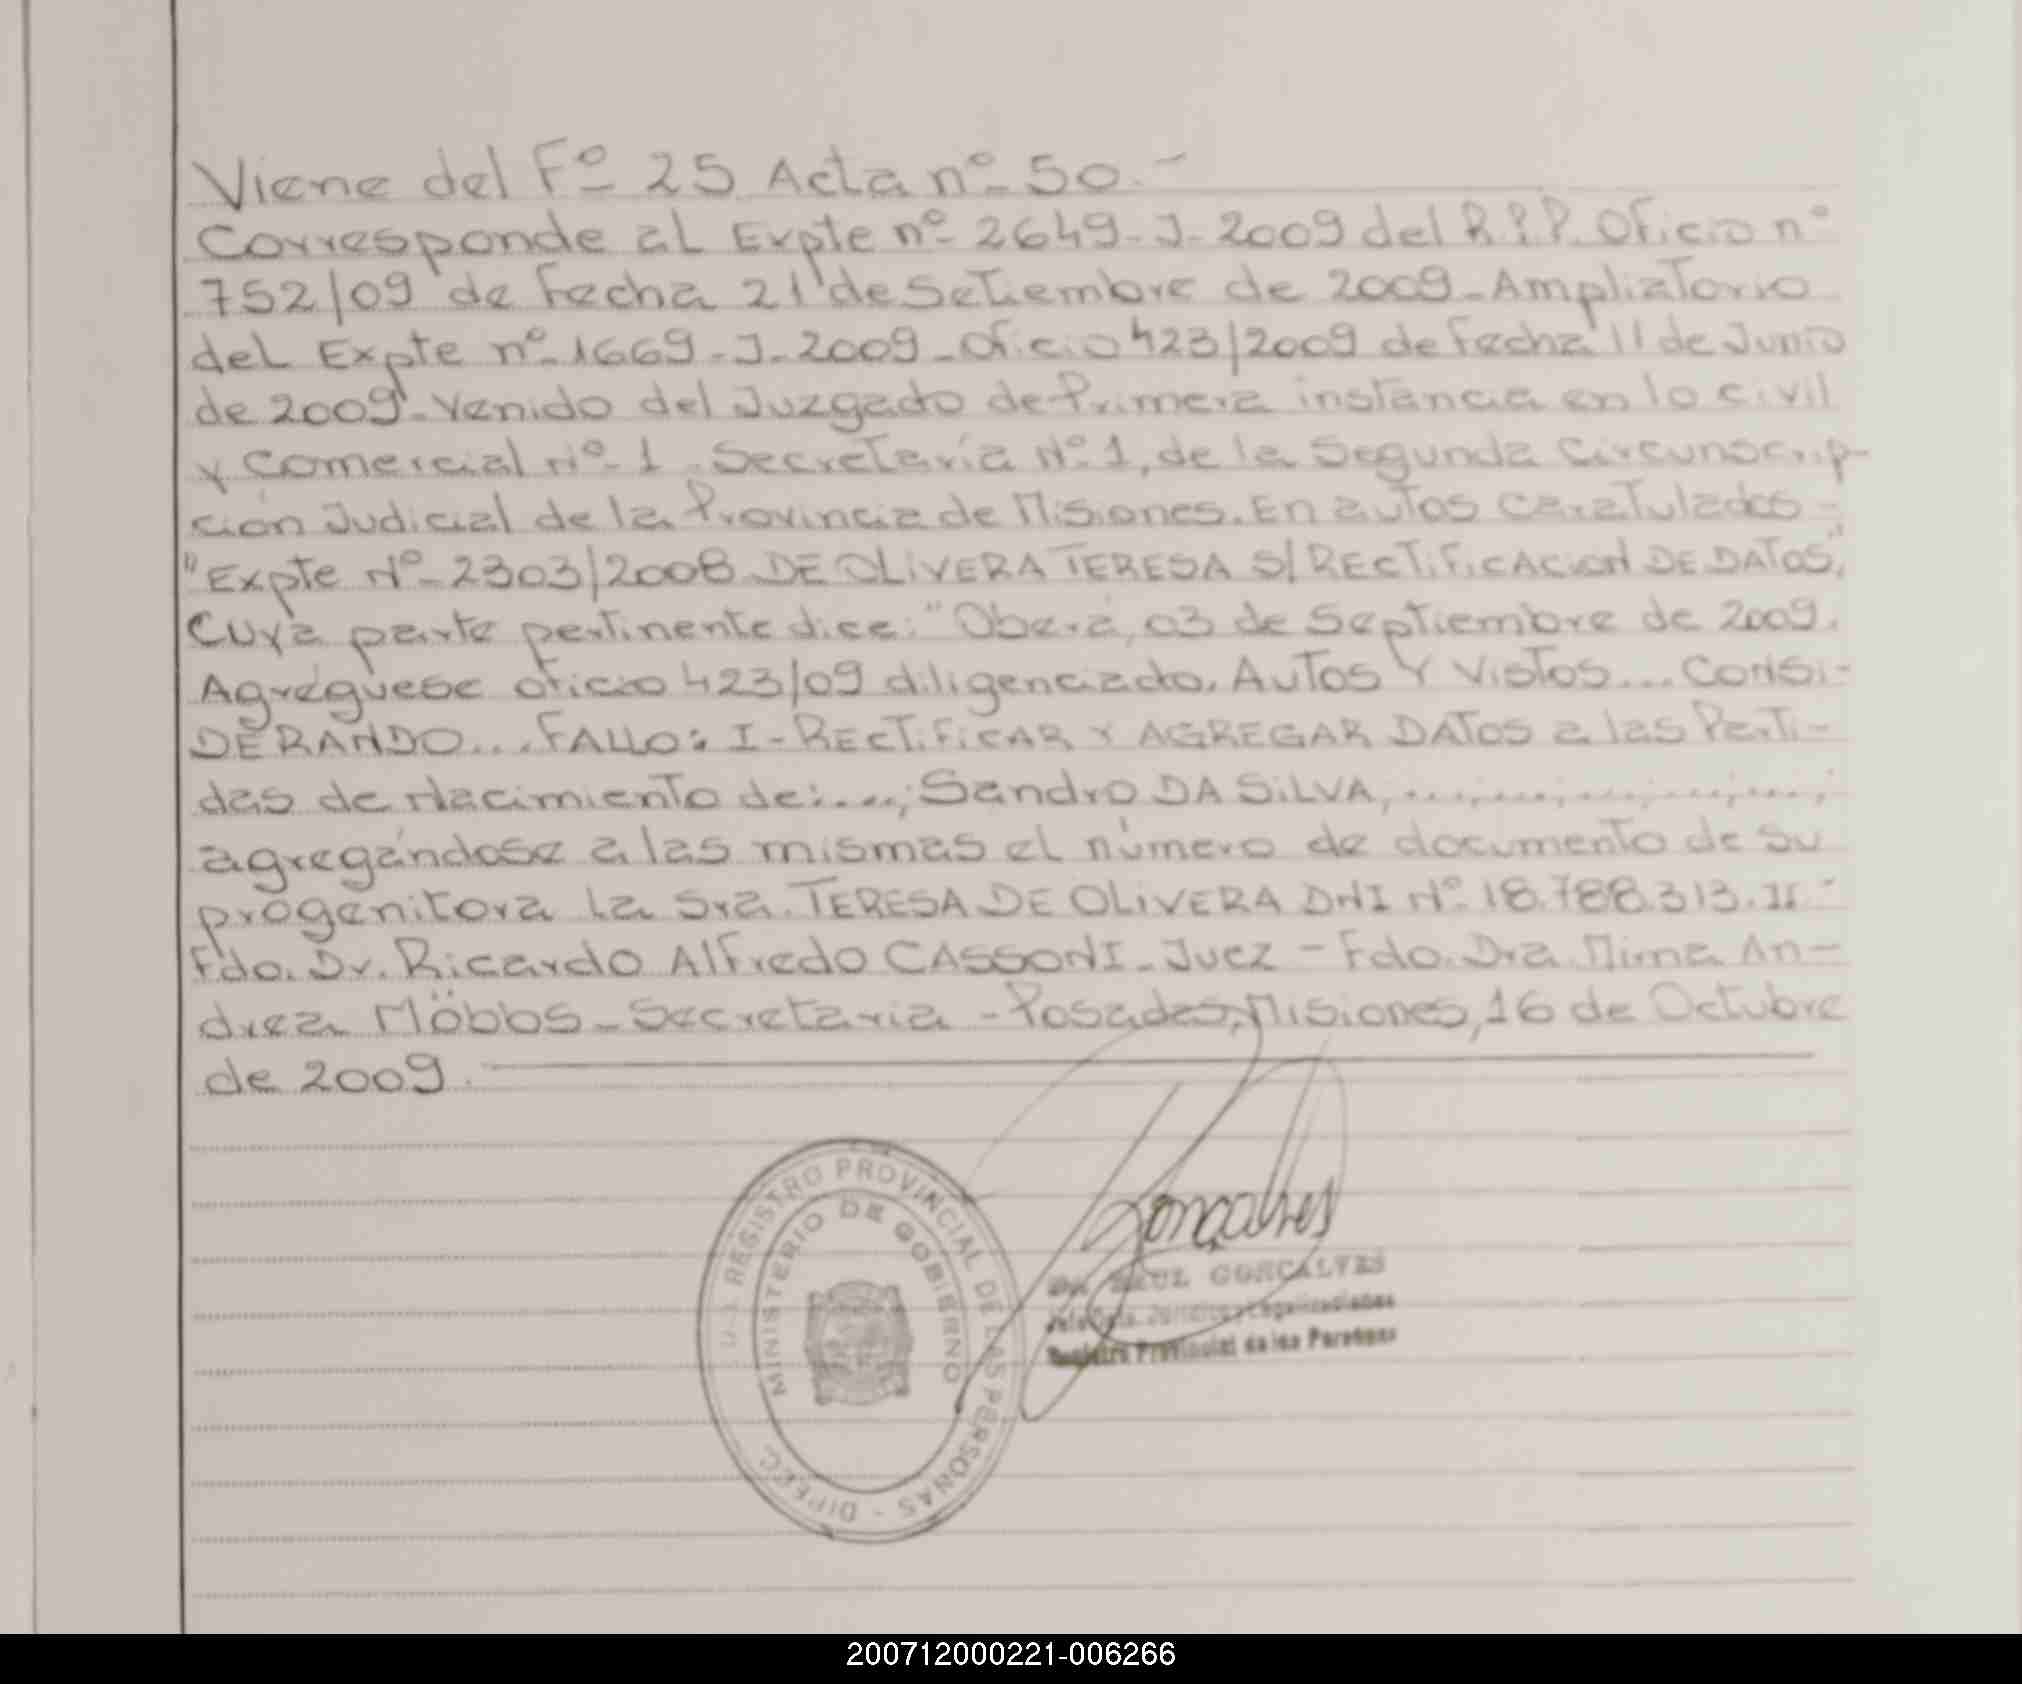 Viene del Fº 25 Acta nº 50.-
Corresponde al Expte nº 2649-J-2009 del R.P.P. Oficio nº
752/09 de Fecha 21 de Setiembre de 2009-Ampliatorio
del Expte nº 1669-J-2009-Oficio 423/2009 de Fecha 11 de Junio
de 2009-Venido del Juzgado de Primera instancia en lo civil
y Comercial Nº 1 Secretaría Nº 1, de la Segunda Circunscrip-
ción Judicial de la Provincia de Misiones. En autos caratulados -
"Expte Nº 2303/2008 DE OLIVERA TERESA S/RECTIFICACION DE DATOS",
Cuya parte pertinente dice: "Oberá, 03 de Septiembre de 2009.
Agréguese oficio 423/09 diligenciado. AUTOS Y VISTOS... CONSI-
DERANDO.... FALLO: I-RECTIFICAR Y AGREGAR DATOS a las Parti-
das de Nacimiento de:....; Sandro DA SILVA, ....;....;....;....;....;
agregándose a las mismas el número de documento de su
progenitora la Sra. TERESA DE OLIVERA DNI Nº 18.788.313. II-
Fdo. Dr. Ricardo Alfredo CASSONI-Juez - Fdo. Dra. Mirna An-
drea Möbbs-Secretaria - Posadas, Misiones, 16 de Octubre
de 2009.
REGISTRO PROVINCIAL DE LAS PERSONAS
MINISTERIO DE GOBIERNO
Gonçalves
RAUL GONCALVES
Registro Provincial de las Personas
200712000221-006266